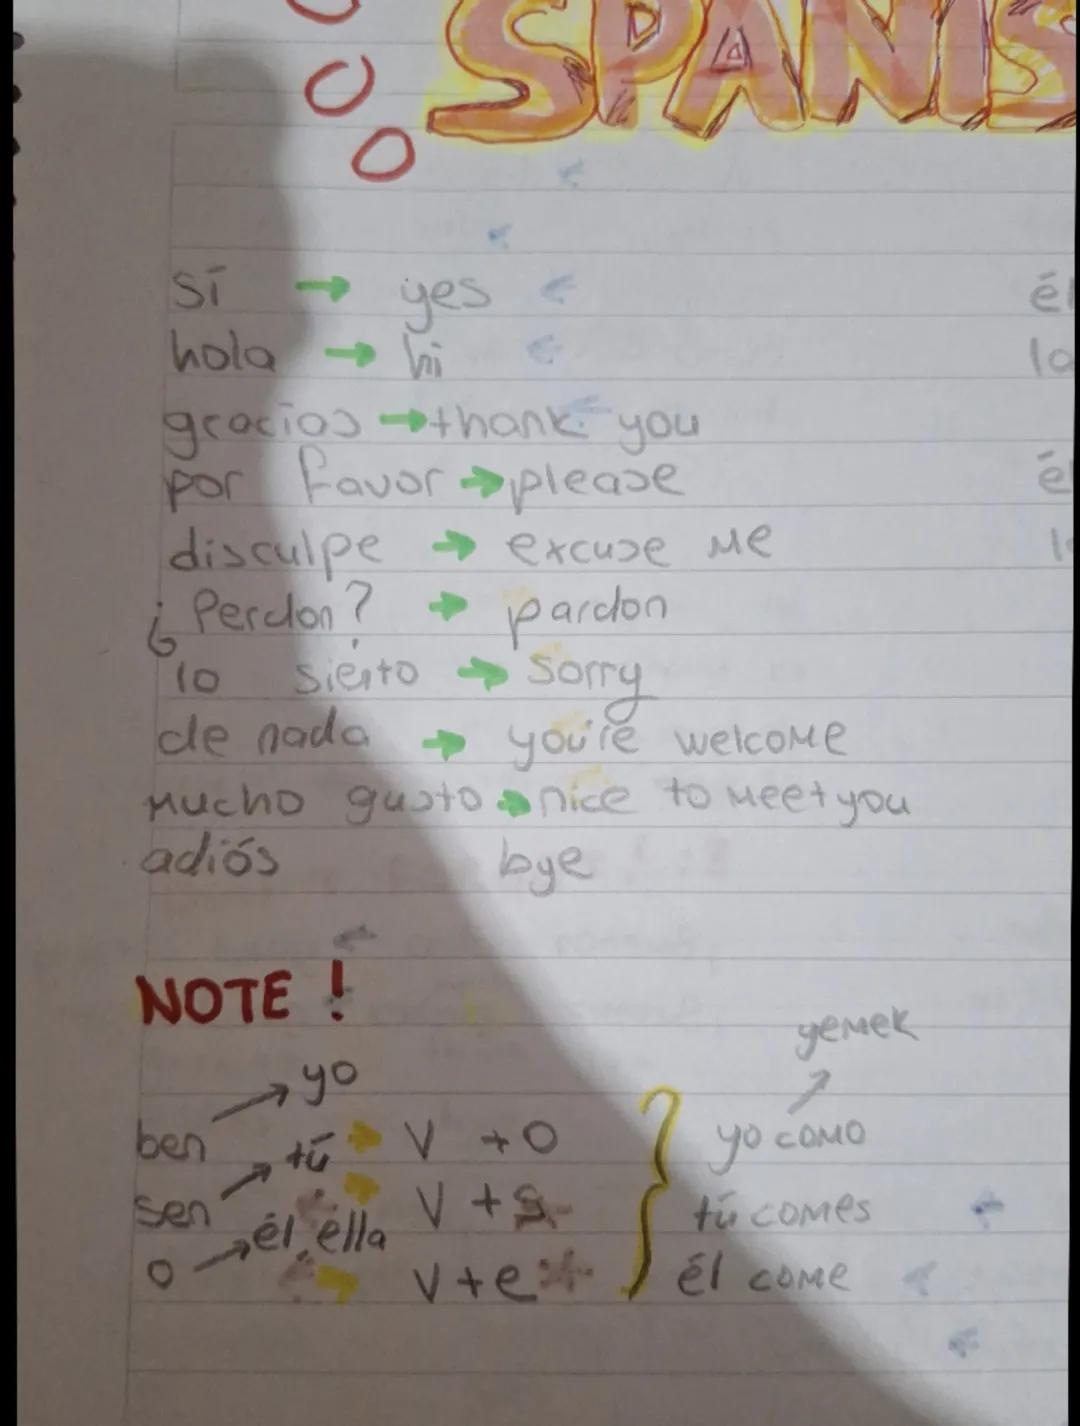 SPANIS
sí → yes él
hola → hi la
gracias → thank you
por favor → please él
disculpe → excuse me
¿Perdon? → pardon
lo siento → sorry
de nada → you're welcome
mucho gusto → nice to meet you
adiós bye
NOTE !
yemek
ben → yo → V + O yo como
sen → tú → V + s tú comes
o → él, ella → V + e él come